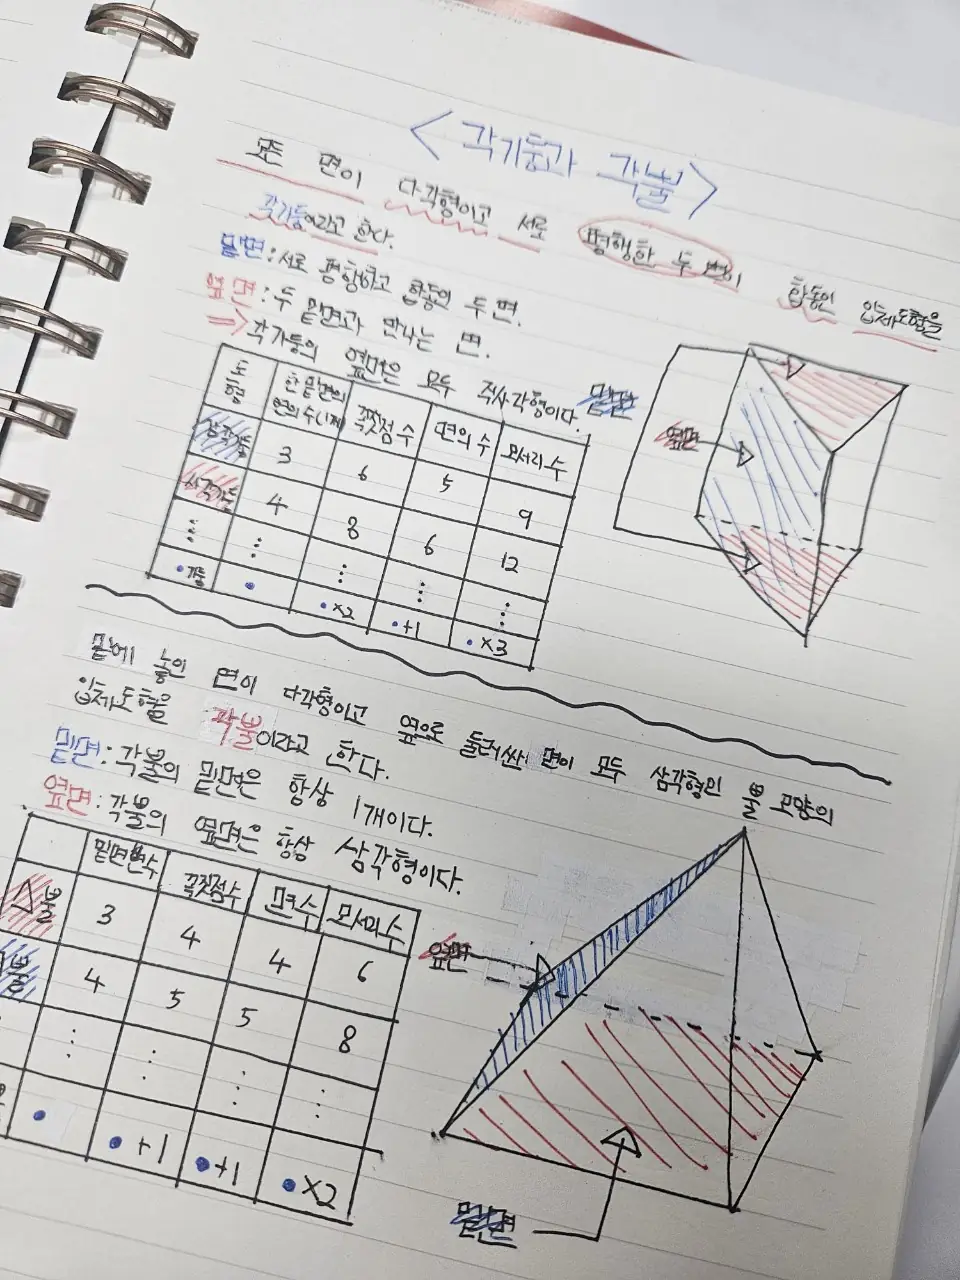 <각기둥과 각뿔>
모든 면이 다각형이고 서로 평행한 두 면이 합동인 입체도형을
각기둥이라고 한다.
밑면: 서로 평행하고 합동인 두 면.
옆면: 두 밑면과 만나는 면.
⇒ 각기둥의 옆면은 모두 직사각형이다.
도형 한 밑면의 변의 수(개) 꼭짓점 수 면의 수 모서리 수
삼각기둥 3 6 5 9
사각기둥 4 8 6 12
⋮ ⋮ ⋮ ⋮ ⋮
•각기둥 • •×2 •+1 •×3
밑면
옆면
밑에 놓인 면이 다각형이고 옆으로 둘러싼 면이 모두 삼각형인 뿔 모양의
입체도형을 각뿔이라고 한다.
밑면: 각뿔의 밑면은 항상 1개이다.
옆면: 각뿔의 옆면은 항상 삼각형이다.
밑면변수 꼭짓점수 면수 모서리수
△뿔 3 4 4 6
뿔 4 5 5 8
⋮ ⋮ ⋮ ⋮
• •+1 •+1 •×2
옆면
밑면